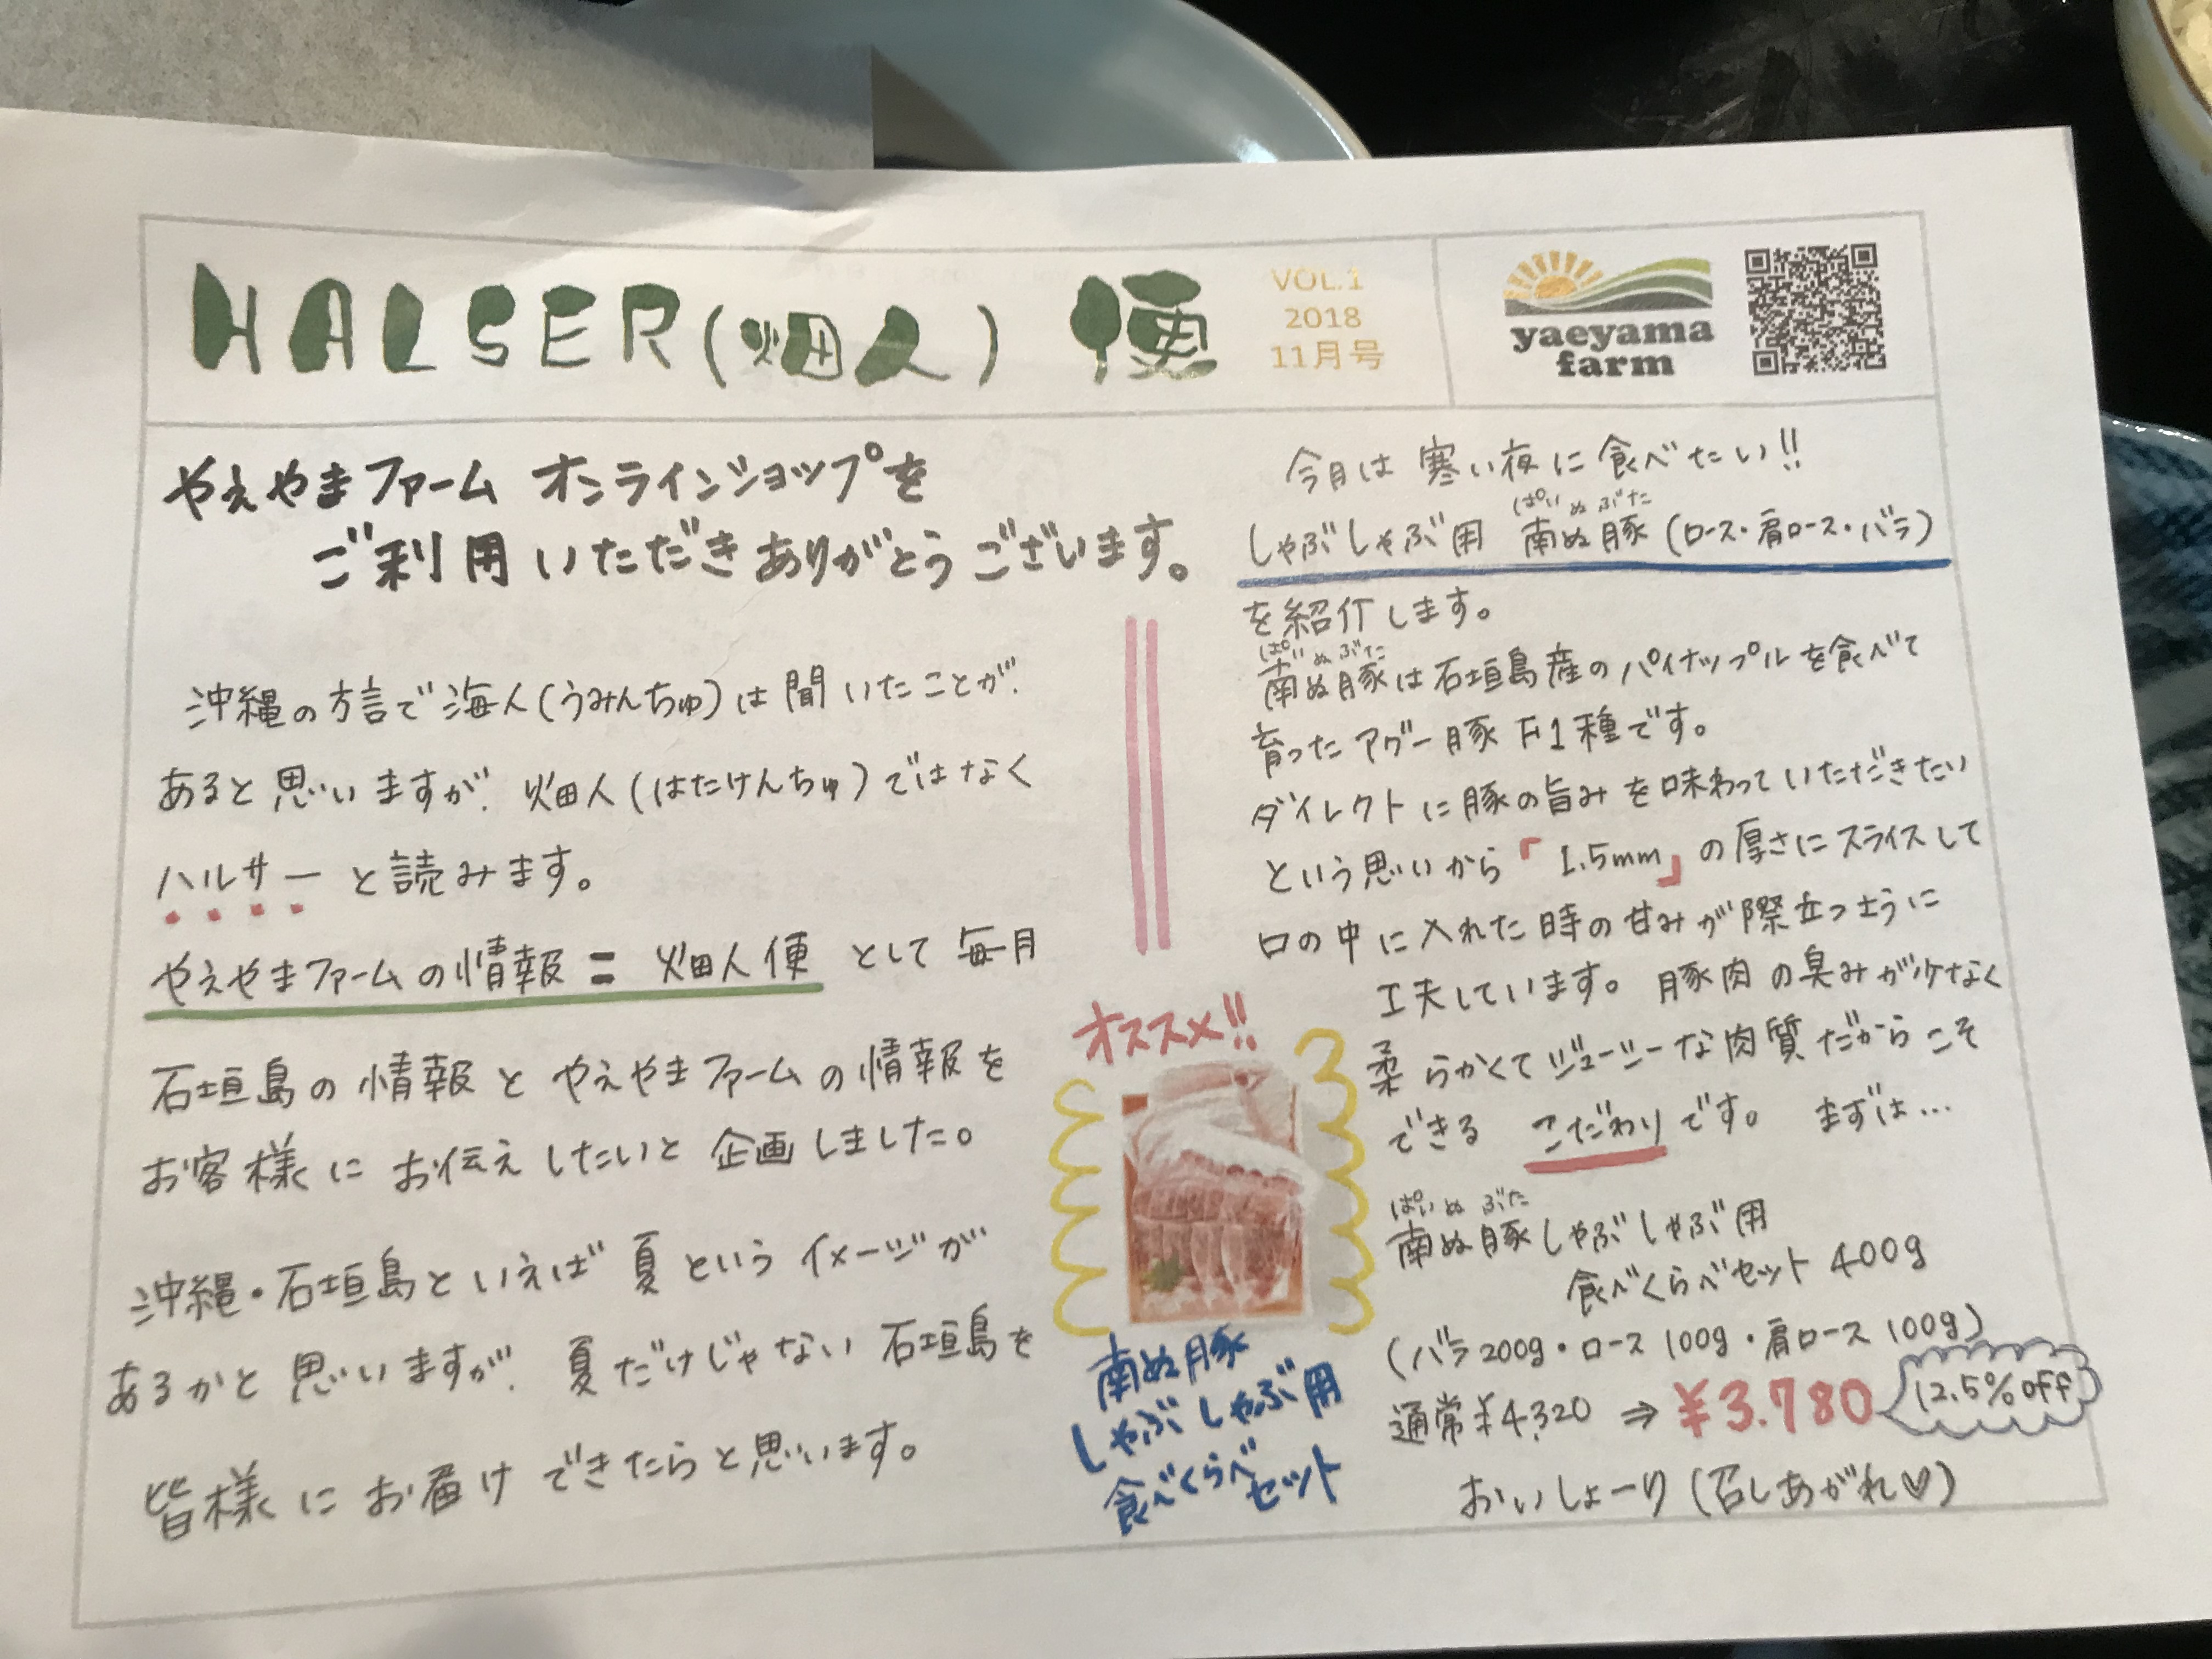 HALSER(畑人)便
VOL.1
2018
11月号
yaeyama
farm
やえやまファーム オンラインショップを
ご利用いただきありがとうございます。
沖縄の方言で海人(うみんちゅ)は聞いたことが
あると思いますが、畑人(はたけんちゅ)ではなく
ハルサーと読みます。
やえやまファームの情報=畑人便 として毎月
石垣島の情報とやえやまファームの情報を
お客様にお伝えしたいと企画しました。
沖縄・石垣島といえば夏というイメージが
あるかと思いますが、夏だけじゃない石垣島を
皆様にお届けできたらと思います。
オススメ!!
南ぬ豚
しゃぶしゃぶ用
食べくらべ
セット
今月は寒い夜に食べたい!!
ぱいぬぶた
しゃぶしゃぶ用 南ぬ豚(ロース・肩ロース・バラ)
を紹介します。
ぱいぬぶた
南ぬ豚は石垣島産のパイナップルを食べて
育ったアグー豚F1種です。
ダイレクトに豚の旨みを味わっていただきたい
という思いから「1.5mm」の厚さにスライスして
口の中に入れた時の甘みが際立つように
工夫しています。豚肉の臭みが少なく
柔らかくてジューシーな肉質だからこそ
できる こだわりです。 まずは…
ぱいぬぶた
南ぬ豚しゃぶしゃぶ用
食べくらべセット 400g
(バラ200g・ロース100g・肩ロース100g)
通常¥4,320 ⇒ ¥3.780 12.5%off
おいしょーり(召しあがれ♡)